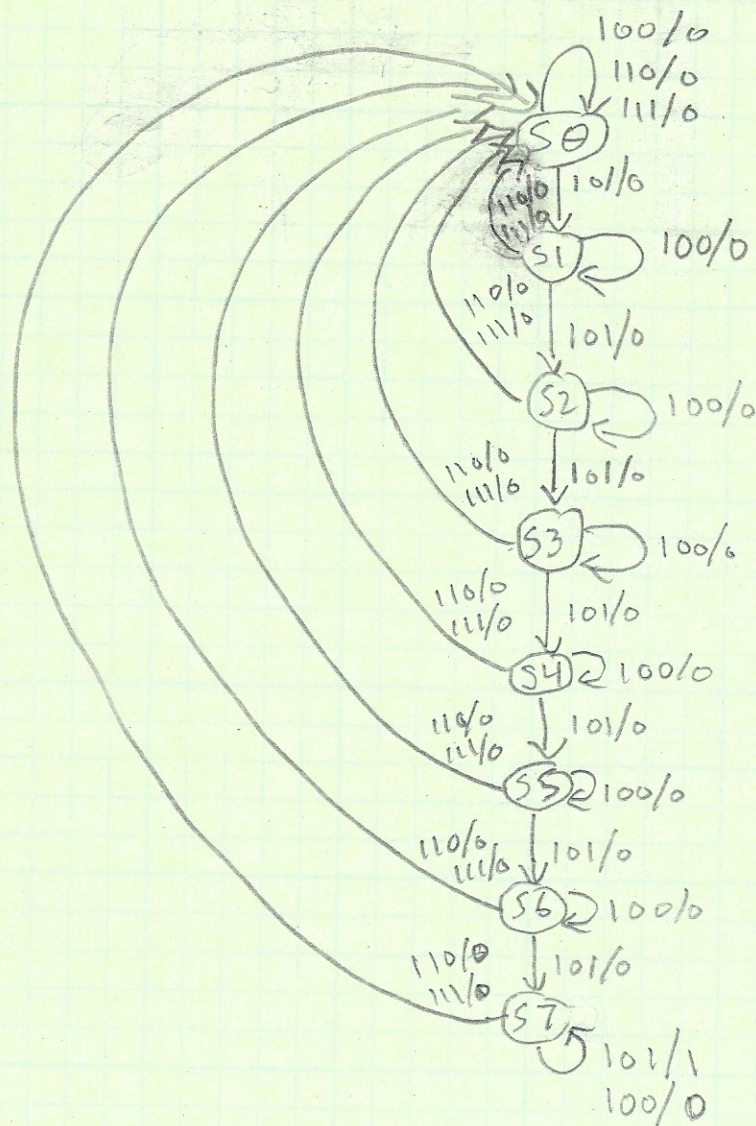 100/0
110/0
111/0
S0
101/0
110/0
111/0
S1
100/0
110/0
111/0
101/0
S2
100/0
110/0
111/0
101/0
S3
100/0
110/0
111/0
101/0
S4
100/0
110/0
111/0
101/0
S5
100/0
110/0
111/0
101/0
S6
100/0
110/0
111/0
101/0
S7
101/1
100/0